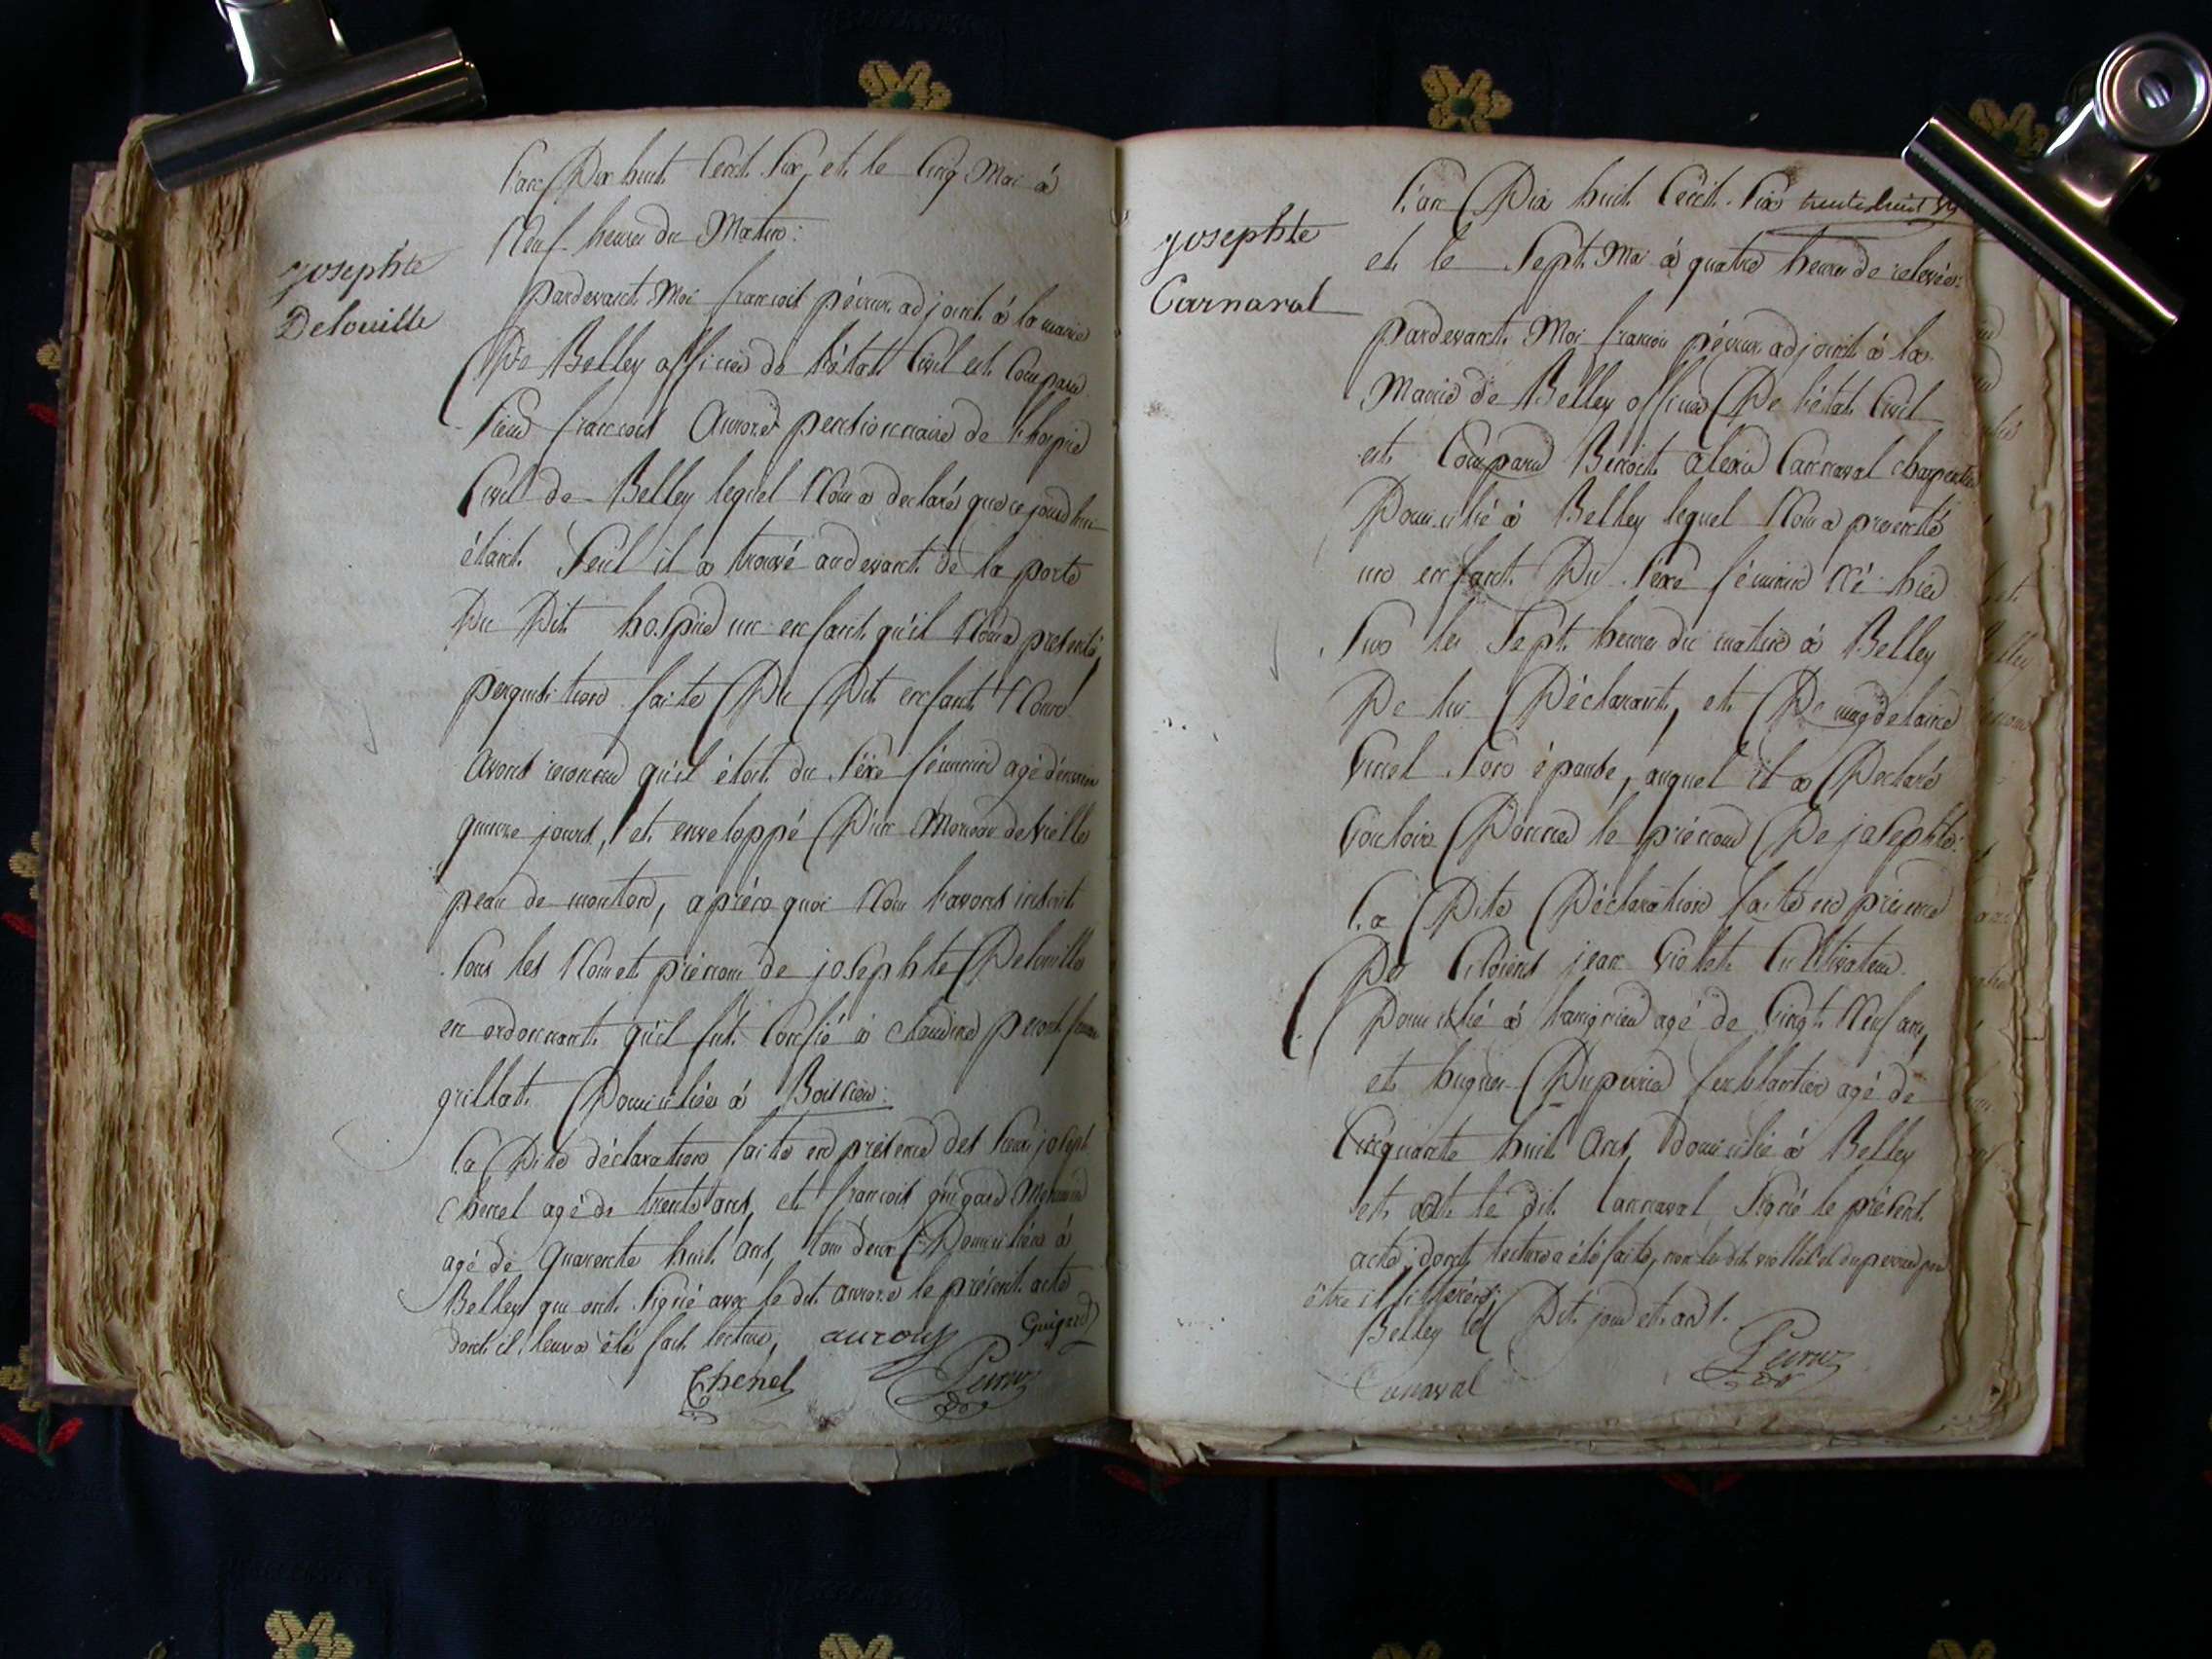 L'an Dix huit Cent Six, et le Cinq Mai à
Neuf heures du Matin:
Josephte
Delouille
pardevant Moi francois pévrux adjoint à la mairie
De Belley officier de l'état Civil est Comparu
Sieur francois Auroze pensionnaire de l'hospice
Civil de Belley lequel Nous a declaré que ce jourd'hui
étant Seul il a trouvé au devant de la porte
Du Dit hospice un enfant qu'il Nous a presenté,
perquisition faite Du Dit enfant Nous
avons reconnu qu'il étoit du Séxe féminin agé d'environ
quinze jours, et enveloppé D'un Morceau de vielle
peau de mouton, aprés quoi Nous l'avons inscrit
Sous les Nom et prénom de josephte Delouille
en ordonnant qu'il fut Confié à Claudine femme
grillat Domiciliée à
La Dite déclaration faite en présence des Sieurs joseph
Chenel agé de trente ans, et francois guigard
agé de quarente huit ans, tous deux Domiciliés à
Belley qui ont Signé avec le dit auroze le présent acte
dont il leur a été fait lecture,
Guigard
Chenel
L'an Dix huit Cent Six
Josephte
Carnaval
et le Sept Mai à quatre heures de relevée:
pardevant Moi francois pévrux adjoint à la
Mairie de Belley officier De l'état Civil
est Comparu Benoit alexis Carnaval charpentier
Domicilié à Belley lequel Nous a presenté
un enfant Du Séxe féminin Né hier
Sur les Sept heures du matin à Belley
De lui Déclarant, et De magdelaine
Son épouse, auquel il a Déclaré
Vouloir Donner le prénom De josephte:
La Dite Déclaration faite en présence
De Citoiens jean Violet Cultivateur
Domicilié à agé de Vingt Neuf ans,
et hugues ferblantier agé de
Cinquante huit ans, domicilié à Belley
et a le dit Carnaval Signé le présent
acte, dont lecture a été faite, non les dits viollet et pour
être illitérés
Belley les Dit jour et an
Carnaval